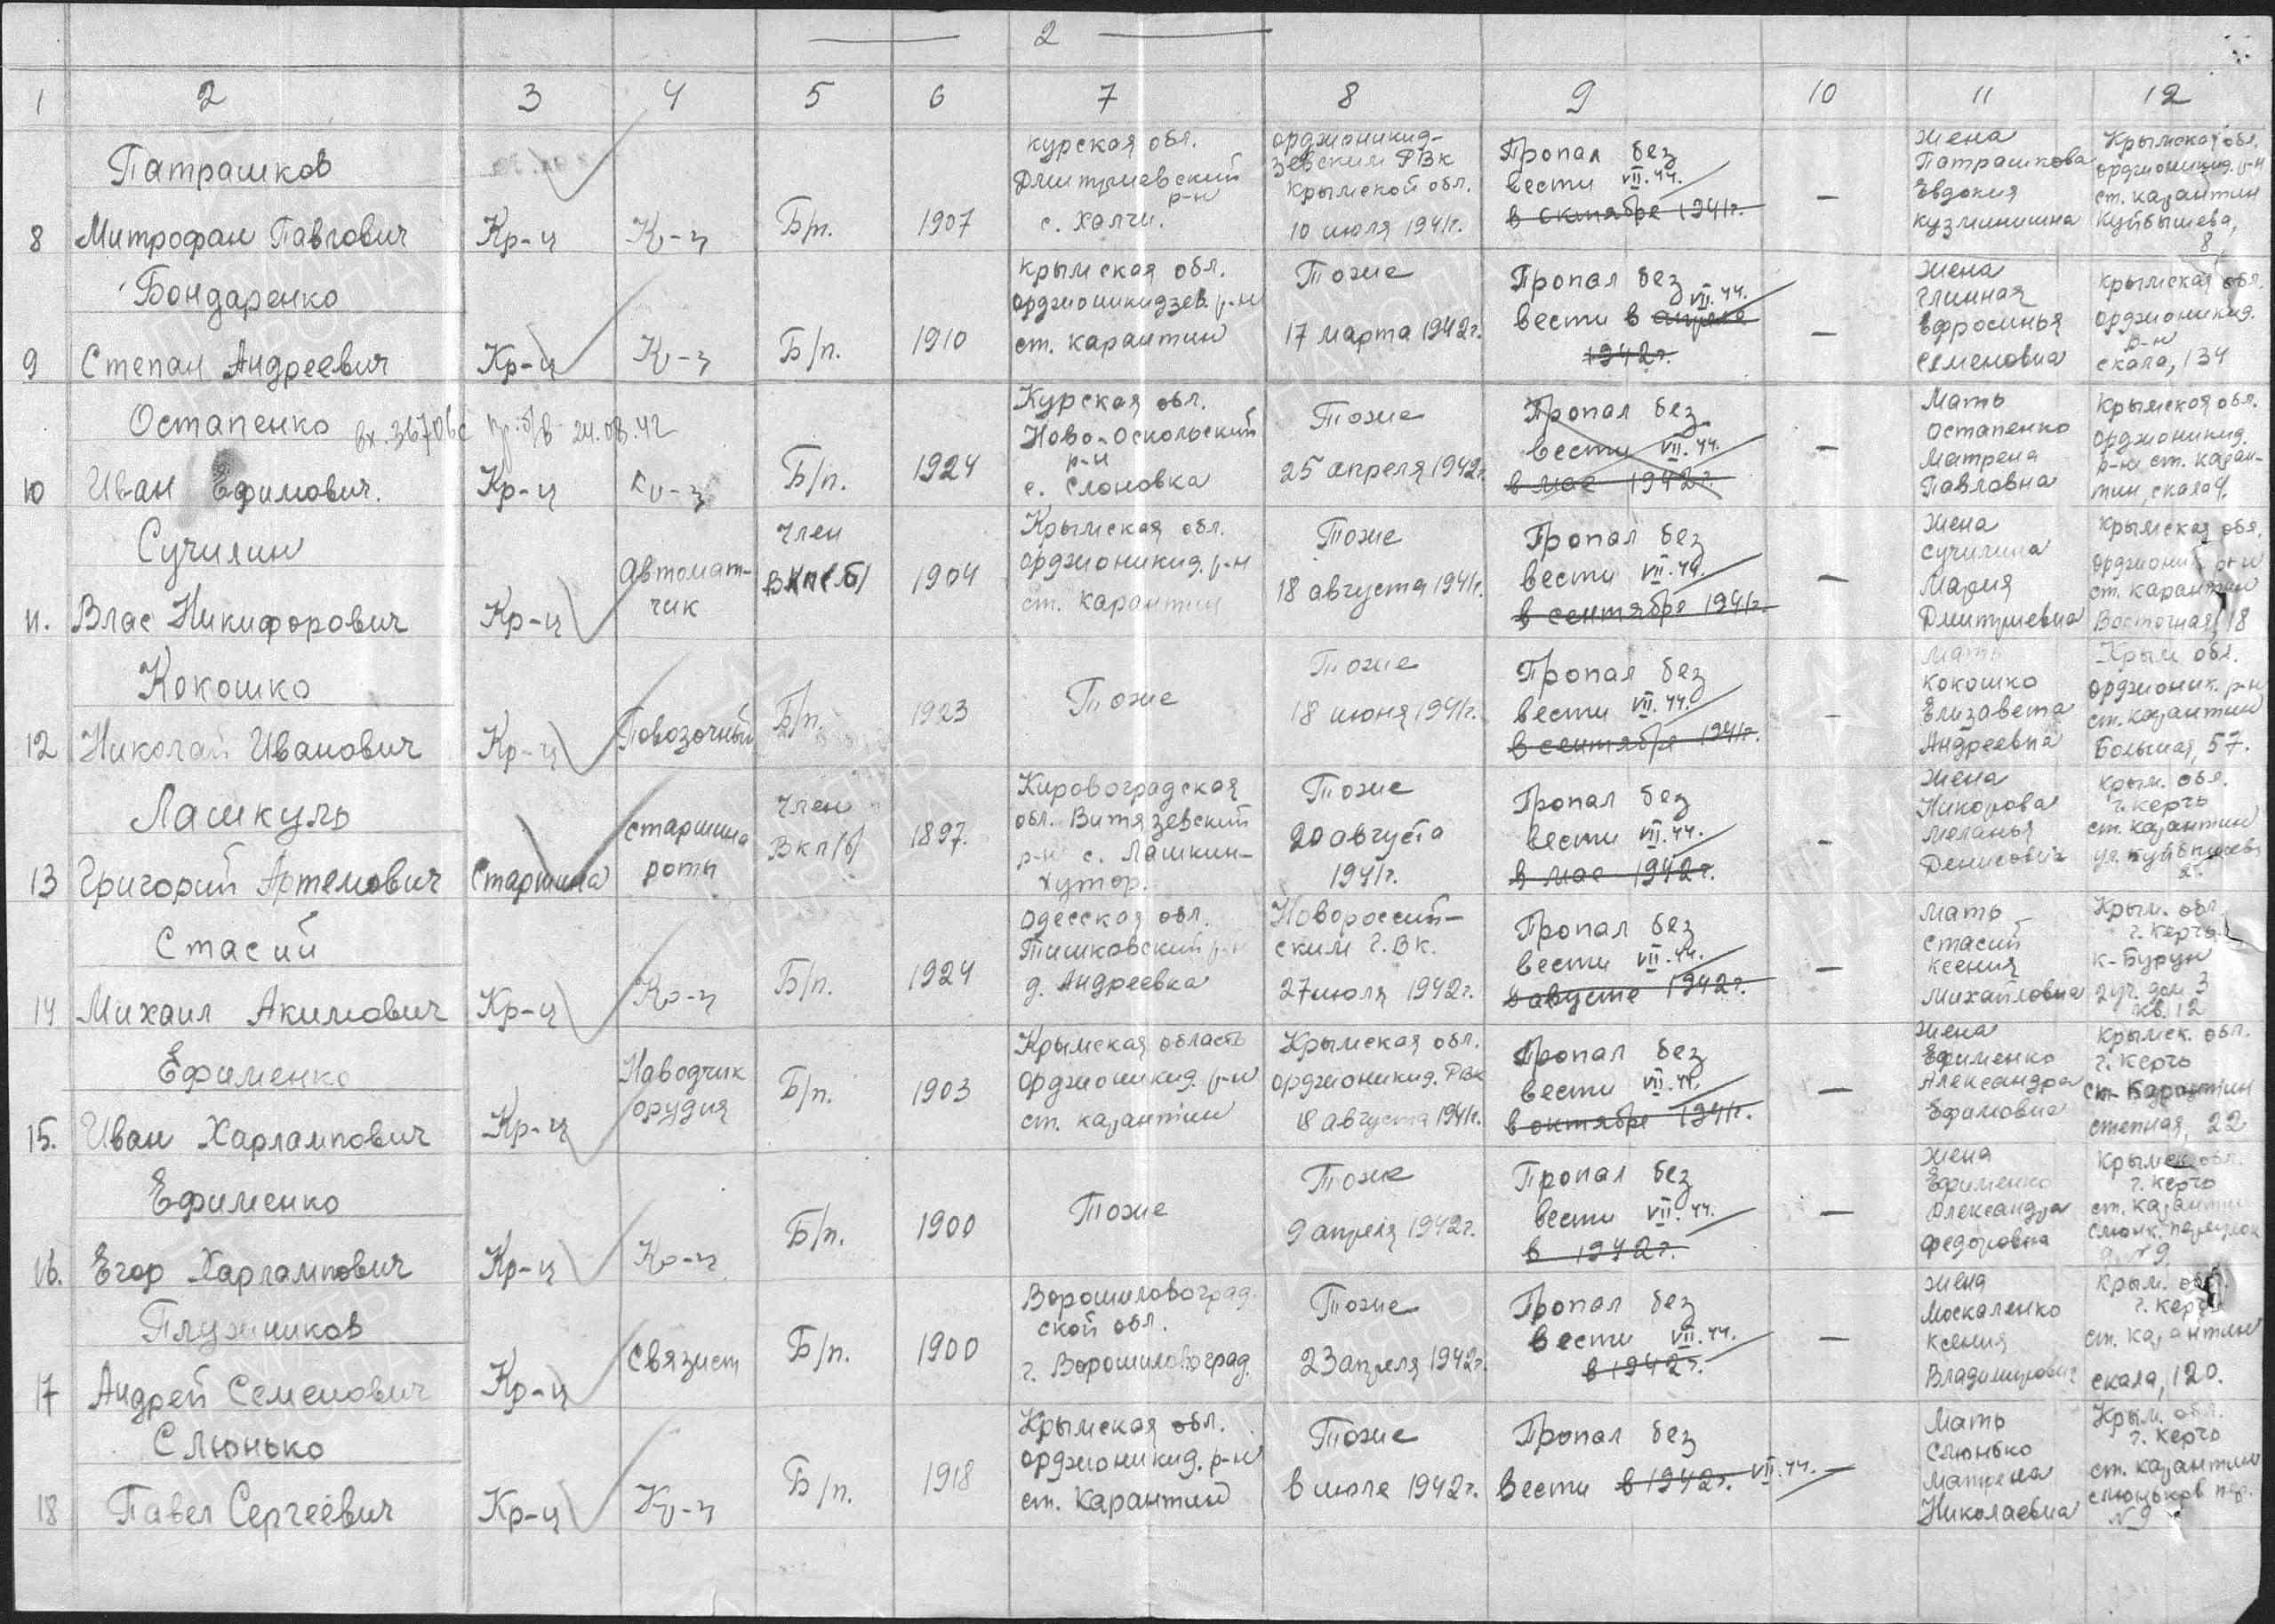 2
1 2 3 4 5 6 7 8 9 10 11 12
8
Патрашков
Митрофан Павлович
Кр-ц
Кр-ц
Б/п.
1907
курская обл.
Дмитриевский
р-н
с. Халчи.
орджоникид-
зевским РВК
Крымской обл.
10 июля 1941г.
Пропал без
вести VII.44.
в октябре 1941г.
—
жена
Патрашкова
Евдокия
кузминишна
Крымская обл.
орджоникид. р-н
ст. карантин
Куйбышева,
8
9
Бондаренко
Степан Андреевич
Кр-ц
Кр-ц
Б/п.
1910
крымская обл.
орджоникидзев. р-н
ст. карантин
Тоже
17 марта 1942г.
Пропал без
VII.44.
вести в апреле
1942г.
—
жена
Глинная
Ефросинья
Семеновна
крымская обл.
орджоникид.
р-н
скала, 134
10
Остапенко вх. 36706с пр. б/в 24.08.42
Иван Ефимович.
Кр-ц
Кр-ц
Б/п.
1924
Курская обл.
Ново-Оскольский
р-н
с. Слоновка
Тоже
25 апреля 1942г.
Пропал без
вести VII.44.
в мае 1942г.
—
Мать
Остапенко
Матрена
Павловна
Крымская обл.
Орджоникид.
р-н ст. каран-
тин, скала
11.
Сучилин
Влас Никифорович
Кр-ц
Автомат-
чик
член
ВКП(б)
1904
Крымская обл.
орджоникид. р-н
ст. карантин
Тоже
18 августа 1941г.
Пропал без
вести VII.44.
в сентябре 1941г.
—
жена
Сучилина
Мария
Дмитриевна
крымская обл.
орджони р-н
ст. карантин
Восточная, 18
12
Кокошко
Николай Иванович
Кр-ц
Повозочный
Б/п.
1923
Тоже
Тоже
18 июня 1941г.
Пропал без
вести VII.44.
в сентябре 1941г.
—
Мать
Кокошко
Елизавета
Андреевна
Крым обл.
орджоник. р-н
ст. карантин
Большая, 57.
13
Лашкуль
Григорий Артемович
Старшина
старшина
роты
член
ВКП/б/
1897.
Кировоградская
обл. Витязевский
р-н с. Лашкин-
хутор.
Тоже
20 августа
1941г.
Пропал без
вести VII.44.
в мае 1942г.
—
жена
Никорова
Меланья
Денисович
крым. обл.
г. керчь
ст. карантин
ул. куйбышев
14
Стасий
Михаил Акимович
Кр-ц
Кр-ц
Б/п.
1924
Одесская обл.
Тишковский р-н
д. Андреевка
Новороссий-
ским Г.В.К.
27 июля 1942г.
Пропал без
вести VII.44.
в августе 1942г.
—
мать
Стасий
Ксения
Михайловна
Крым. обл.
г. Керчь
К-Бурун
2 уч. дом 3
кв. 12
15.
Ефименко
Иван Харлампович
Кр-ц
Наводчик
орудия
Б/п.
1903
Крымская область
орджоникид. р-н
ст. карантин
Крымская обл.
орджоникид. РВК
18 августа 1941г.
Пропал без
вести VII.44.
в октябре 1941г.
—
жена
Ефименко
Александра
Ефимовна
крымск. обл.
г. Керчь
ст. Карантин
степная, 22
16.
Ефименко
Егор Харлампович
Кр-ц
Кр-ц
Б/п.
1900
Тоже
Тоже
9 апреля 1942г.
Пропал без
вести VII.44.
в 1942г.
—
жена
Ефименко
Александра
Федоровна
Крымск. обл.
г. керчь
ст. карантин
слюнк. переулок
№9
17
Плужников
Андрей Семенович
Кр-ц
Связист
Б/п.
1900
Ворошиловоград.
ской обл.
г. Ворошиловград.
Тоже
23 апреля 1942г.
Пропал без
вести VII.44.
в 1942г.
—
жена
Москаленко
Ксения
Владимирович
Крым. обл.
г. керчь
ст. карантин
скала, 120.
18
Слюнько
Павел Сергеевич
Кр-ц
Кр-ц
Б/п.
1918
Крымская обл.
орджоникид. р-н
ст. Карантин
Тоже
в июле 1942г.
Пропал без
вести в 1942г. VII.44.
—
Мать
Слюнько
Матрена
Николаевна
Крым. обл.
г. Керчь
ст. карантин
слюньков пер.
№9